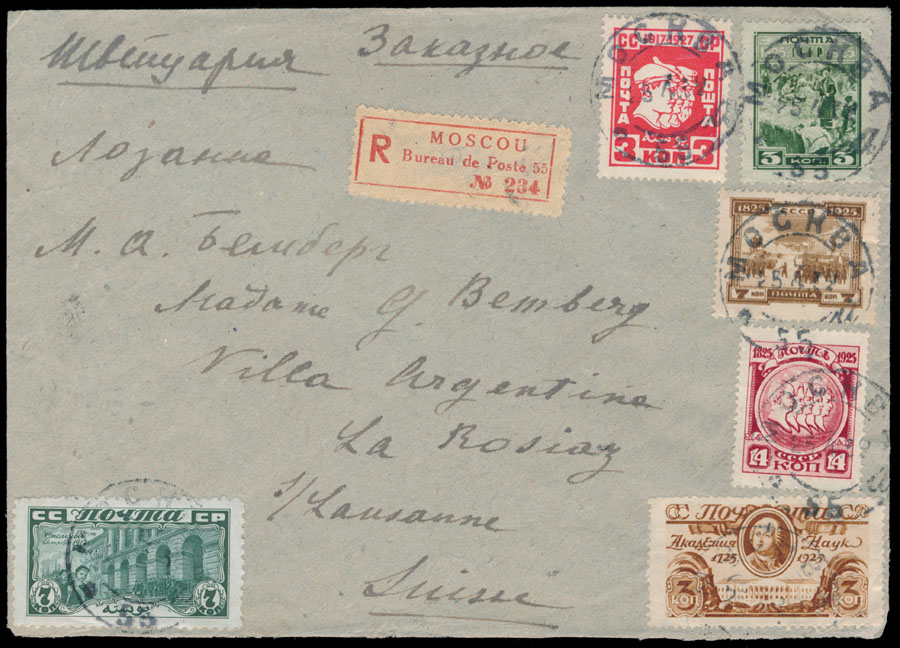 Швейцария Заказное
Лозанна
М. А. Бемберг
Madame G. Bemberg
Villa Argentina
La Rosiaz
s/Lausanne
Suisse
R MOSCOU
Bureau de Poste 55
№ 234
СС 1917-1927 СР
ПОЧТА ПОЧТА
3 КОП 3
МОСКВА
55
ПОЧТА
СССР
3 КОП. 3
МОСКВА
55
1825 СССР 1925
7 КОП ПОЧТА КОП 7
МОСКВА
55
1825 ПОЧТА 1925
СССР
14 КОП 14
55
СС ПОЧТА СР
7 КОП 7 КОП
55
ПОЧТА
Академия Наук
1725 1925
3 КОП 3 КОП